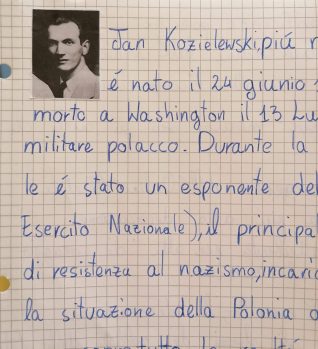 Jan Kozielewski, piú
é nato il 24 giunio
morto a Washington il 13 Lu
militare polacco. Durante la
le é stato un esponente de
Esercito Nazionale), il principa
di resistenza al nazismo, incari
la situazione della Polonia